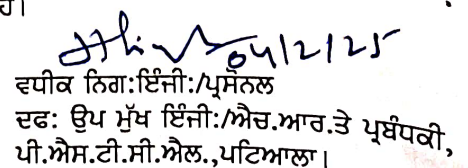 ਹ।
04/2/25
ਵਧੀਕ ਨਿਗ:ਇੰਜੀ:/ਪ੍ਰਸੋਨਲ
ਦਫ: ਉਪ ਮੁੱਖ ਇੰਜੀ:/ਐਚ.ਆਰ.ਤੇ ਪ੍ਰਬੰਧਕੀ,
ਪੀ.ਐਸ.ਟੀ.ਸੀ.ਐਲ.,ਪਟਿਆਲਾ।